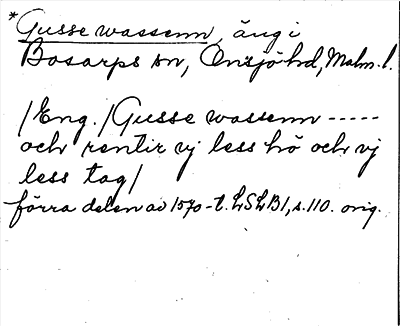 *Gusse wassenn, äng i
Bosarps sn, Onsjö hd, Malm. l.
/Eng./Gusse wassenn -----
och rentir vj less hö och vj
less tag/
förra delen av 1570-t. LSLB1, s. 110. orig.